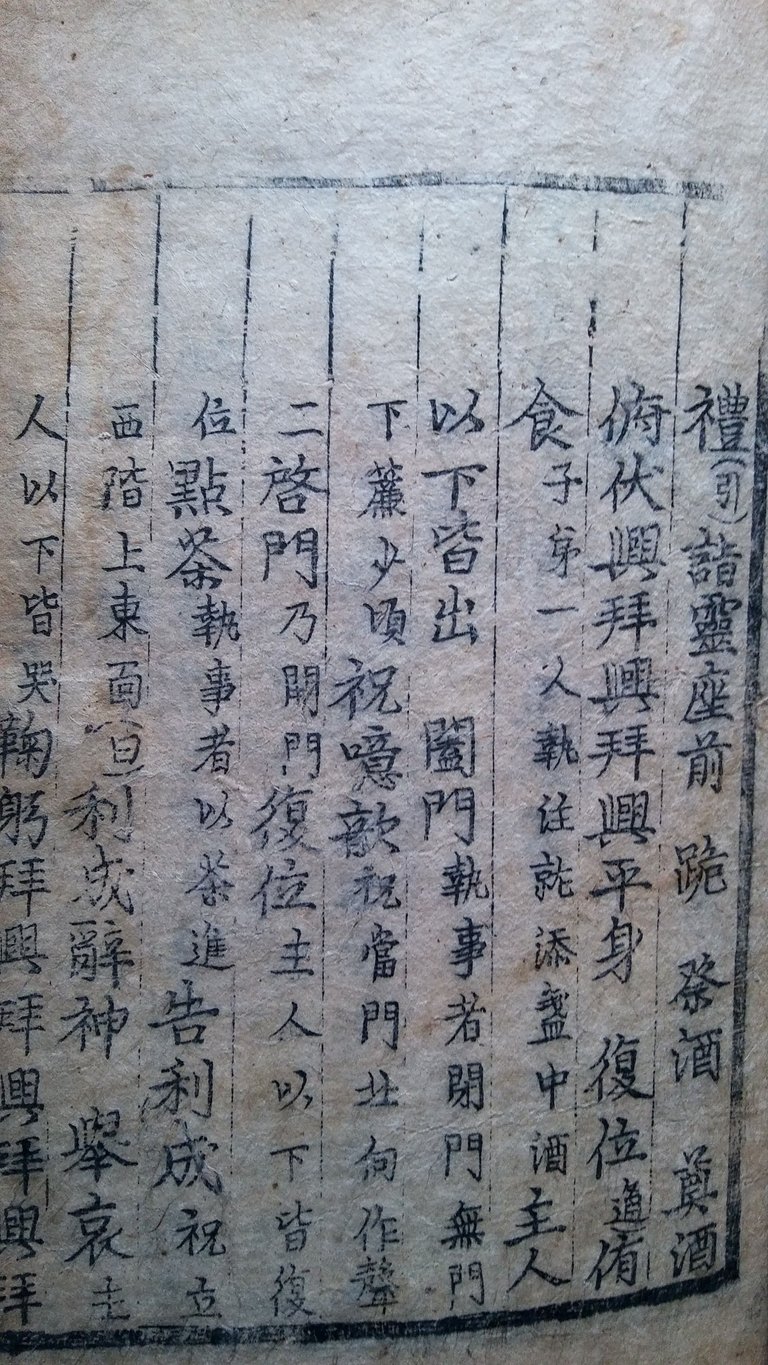 禮(引)詣靈座前 跪 祭酒 奠酒
俯伏興拜興拜興平身 復位通侑
食子弟一人執注就添盞中酒主人
以下皆出 闔門執事者閉門無門
下簾少頃祝噫歆祝當門北向作聲
二啓門乃開門復位主人以下皆復
位點茶執事者以茶進告利成祝立
西階上東面(白)利成辭神 擧哀主
人以下皆哭鞠躬拜興拜興拜興拜